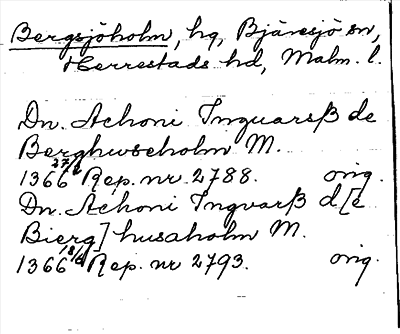 Bergsjöholm, hg, Bjäresjö sn,
Herrestads hd, Malm. l.
Dn. Achoni Inguarsß de
Berghwseholm M.
1366 27/6 Rep. nr 2788. orig.
Dn. Achoni Ingvarß d[e
Bierg]husaholm M.
1366 Rep. nr 2793. orig.